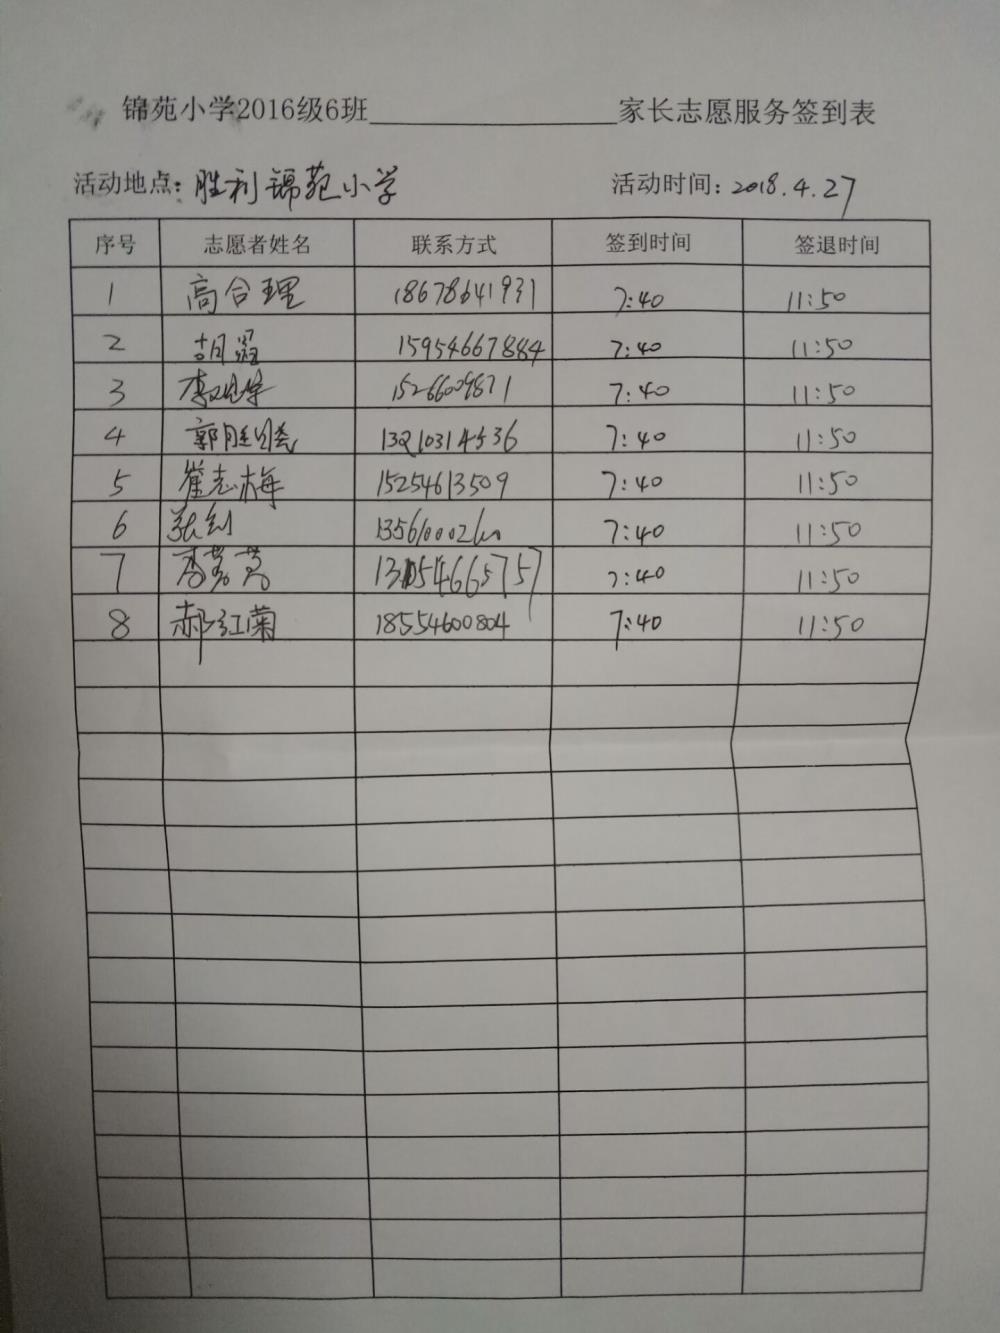 锦苑小学2016级6班 家长志愿服务签到表
活动地点：胜利锦苑小学 活动时间：2018.4.27
序号 志愿者姓名 联系方式 签到时间 签退时间
1 高合理 18678641931 7:40 11:50
2 胡 15954667884 7:40 11:50
3 李 15266009871 7:40 11:50
4 郭胜 13210314536 7:40 11:50
5 崔志梅 15254613509 7:40 11:50
6 张 7:40 11:50
7 李 7:40 11:50
8 郝红菊 18554600804 7:40 11:50